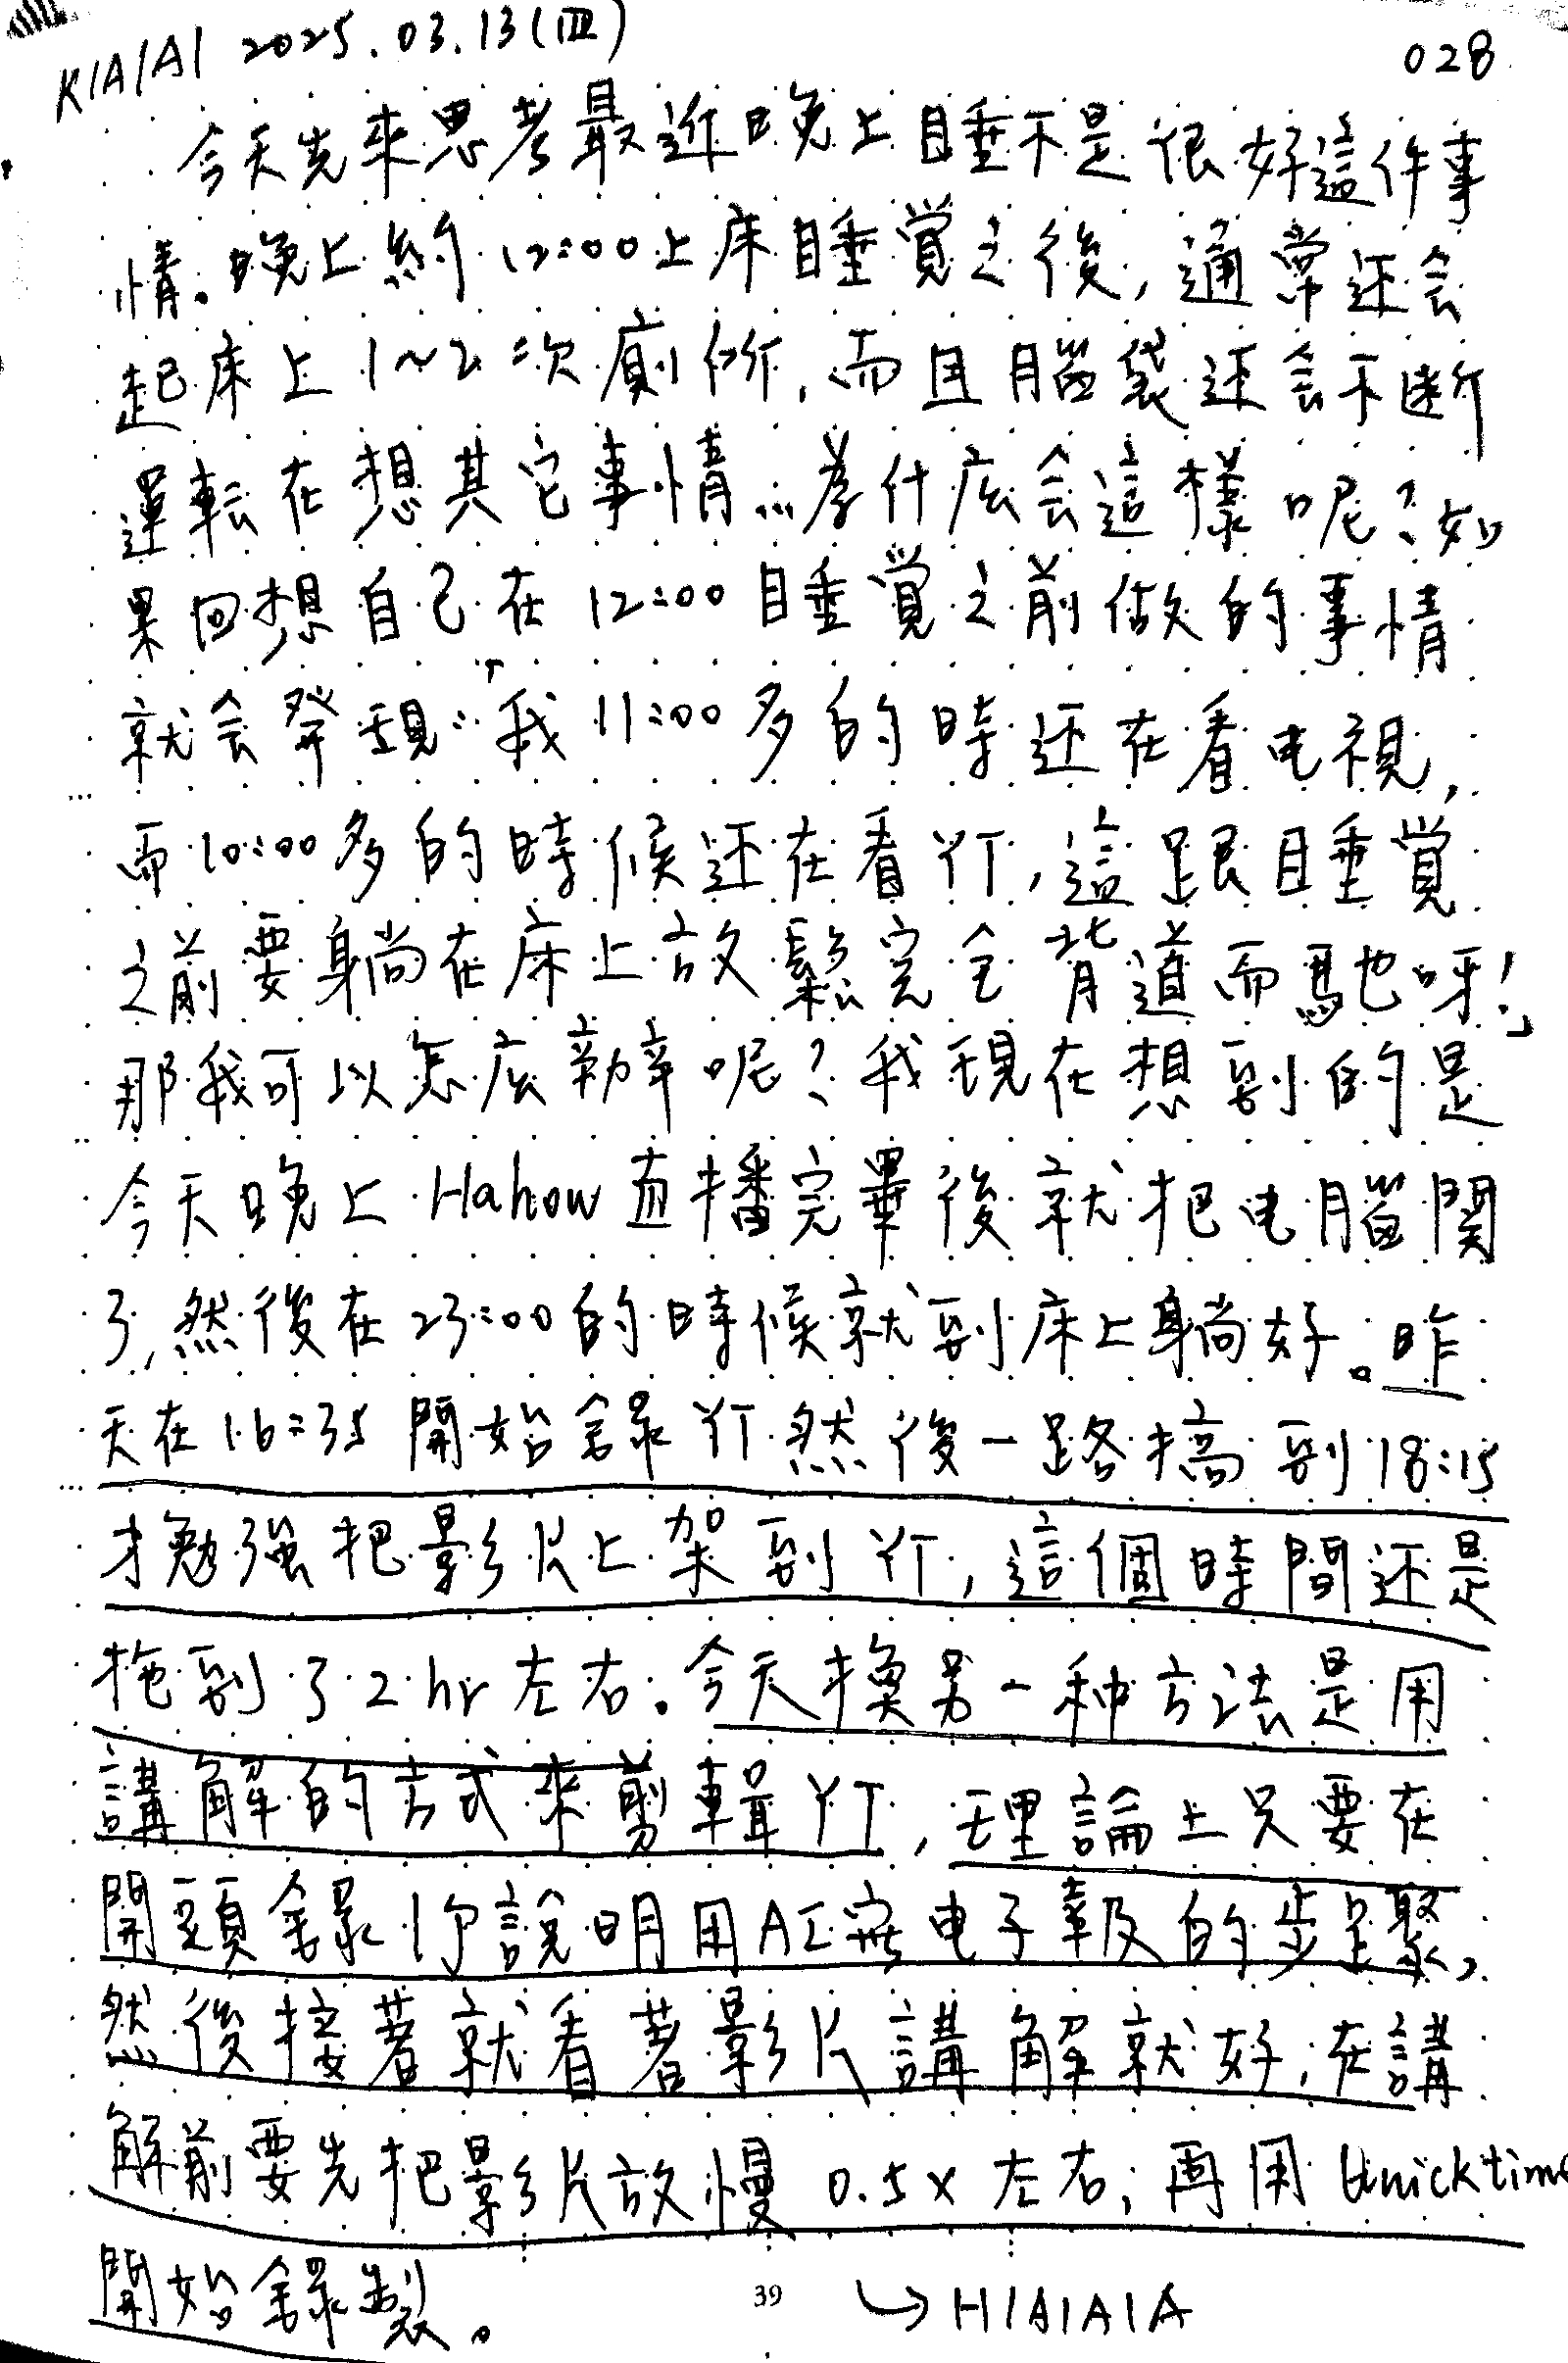 K/A/A/ 2025.03.13(四)
028
今天先來思考最近晚上睡不是很好這件事
情。晚上約12:00上床睡覚之後,通常还会
起床上1~2次廁所,而且腦袋还会不断
運転在想其它事情…為什庅会這樣呢?如
果回想自己在12:00睡覚之前做的事情
就会発現:我11:00多的時还在看电視,
而10:00多的時候还在看YT,這跟睡覚
之前要躺在床上放鬆完全背道而馳呀!
那我可以怎庅辦呢?我現在想到的是
今天晚上Hahow直播完畢後就把电腦関
了,然後在23:00的時候就到床上躺好。昨
天在16:35開始録YT然後一路搞到18:15
才勉強把影片上架到YT,這個時間还是
拖到了2hr左右。今天換另一种方法是用
講解的方式來剪輯YT,理論上只要在
開頭録1個說明用AI寫电子報的步驟,
然後接著就看著影片講解就好,在講
解前要先把影片放慢0.5x左右,再用Quicktime
開始録製。
39
↳H/A/A/A